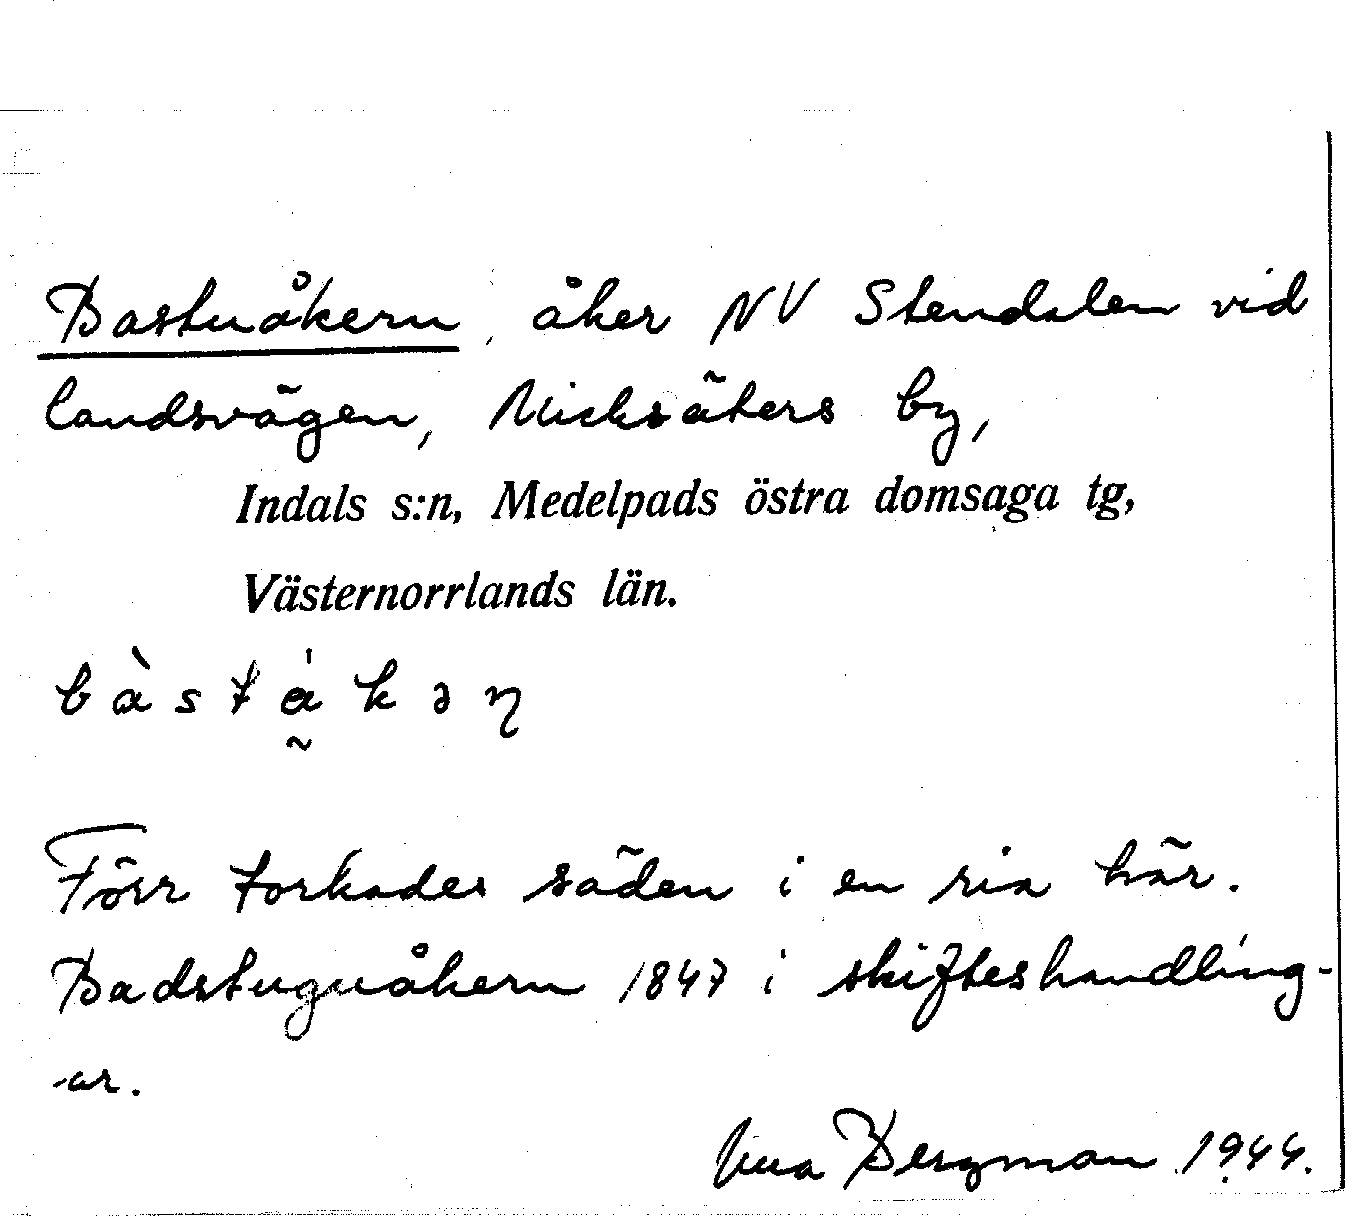 Bastuåkern, åker NV Stendalen vid
landsvägen, Nicksäters by,
Indals s:n, Medelpads östra domsaga tg,
Västernorrlands län.
bàstákəη
Förr torkades säden i en ria här.
Badstuguåkern 1847 i skifteshandling-
-ar.
Bergman 1944.